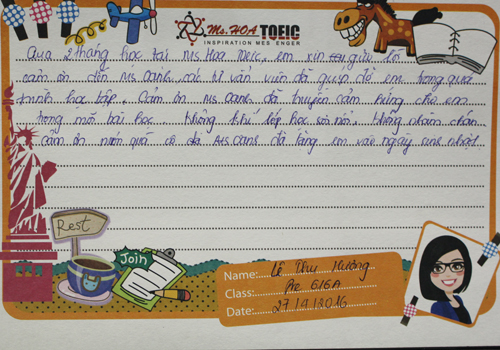 Ms.HOA TOEIC
INSPIRATION MESSENGER
Qua 2 tháng học tại Ms Hoa Toeic, em xin gửi lời
cảm ơn đến Ms Oanh, các tư vấn viên đã giúp đỡ em trong quá
trình học tập. Cảm ơn Ms Oanh đã truyền cảm hứng cho em
trong mỗi bài học. Không khí lớp học sôi nổi, không nhàm chán
cảm ơn món quà cô Ms Oanh đã tặng em vào ngày sinh nhật
Rest
Join
Name: Lê Thu Hường
Class: Pre 616A
Date: 27/9/2016